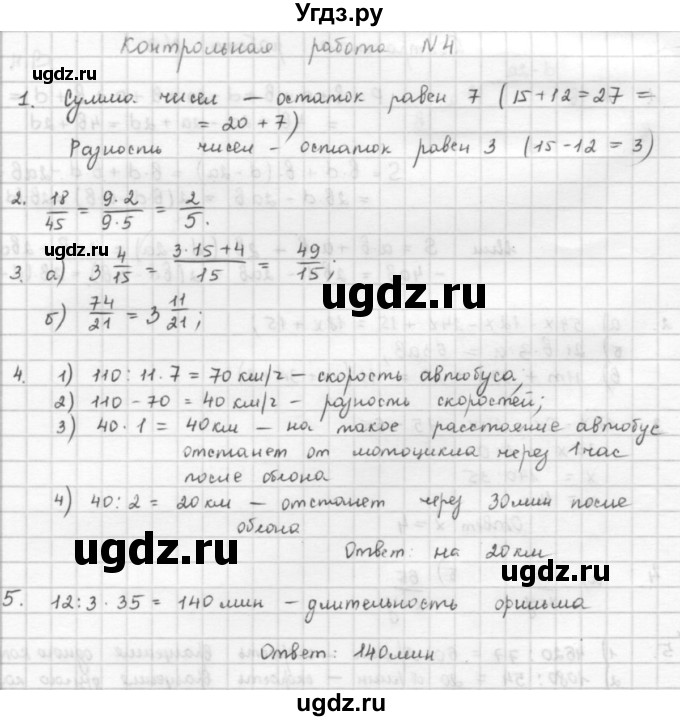 Угдз.ру
Контрольная работа №4
ugdz.ru
1. Сумма чисел – остаток равен 7 (15+12=27=
=20+7)
Разность чисел – остаток равен 3 (15-12=3)
2. 18/45 = 9·2/9·5 = 2/5.
ugdz.ru
3. а) 3 4/15 = 3·15+4/15 = 49/15;
ugdz.ru
б) 74/21 = 3 11/21;
4. 1) 110:11·7=70км/г – скорость автобуса,
2) 110-70=40км/г – разность скоростей;
3) 40·1=40км – на такое расстояние автобус
отстанет от мотоцикла через 1час
после обгона
4) 40:2=20км – отстанет через 30мин после
обгона
ugdz.ru
ugdz.ru
Ответ: на 20км
5. 12:3·35=140мин – длительность фильма
Ответ: 140мин
ugdz.ru
ugdz.ru